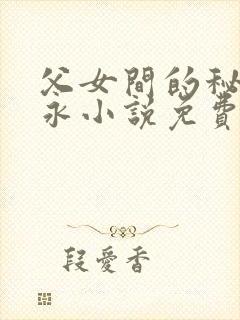 父女間的秘
永小説免費
段愛香